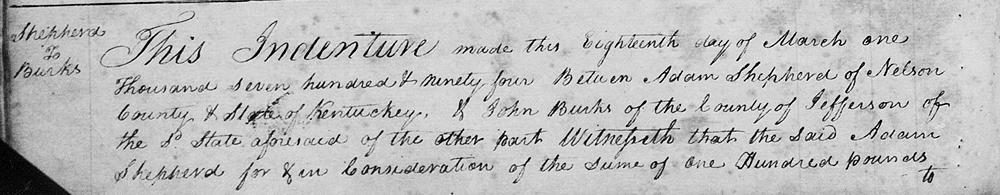 Shepherd
To
Burks
This Indenture made this Eighteenth day of March one
Thousand seven hundred & ninety four Between Adam Shepherd of Nelson
County & State of Kentuckey. & John Burks of the County of Jefferson of
the Sd State aforesaid of the other part Witnesseth that the said Adam
Shepherd for & in Consideration of the Sume of one Hundred pounds
to